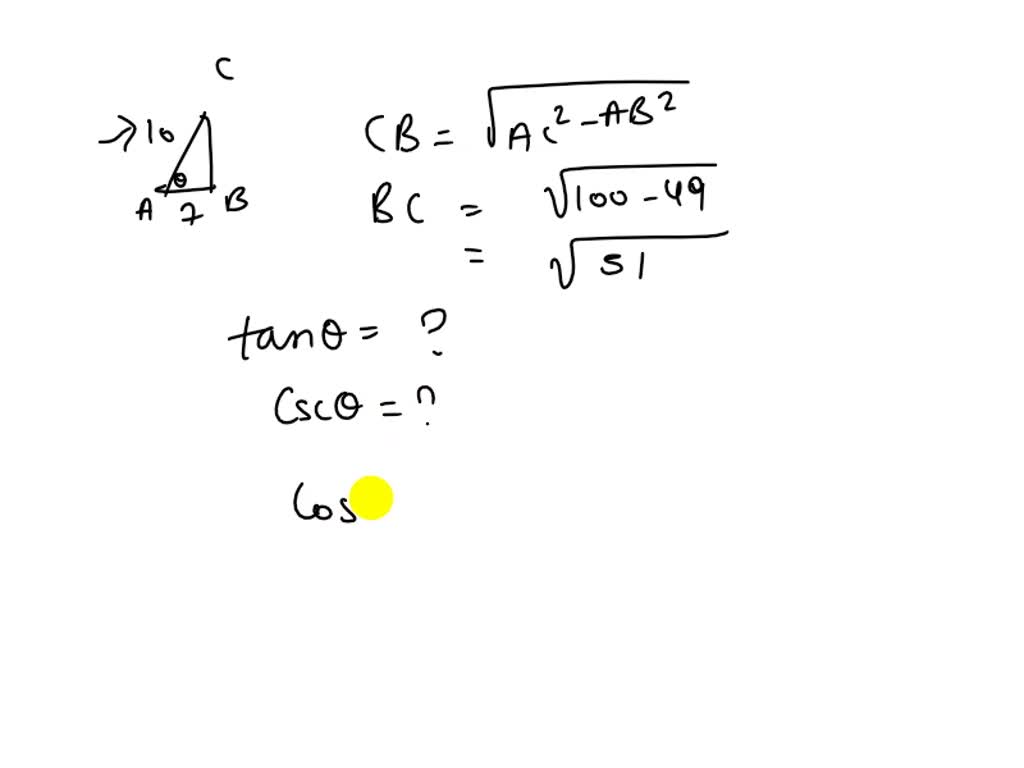 C
→10
θ
A 7 B
CB = √AC² - AB²
BC = √100 - 49
= √51
tanθ = ?
Cscθ = ?
Cos